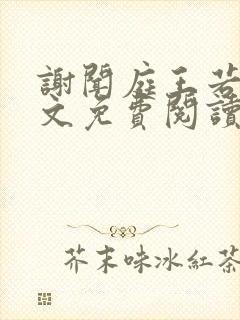 謝聞庭王若
文免費閱讀
芥末味冰紅茶